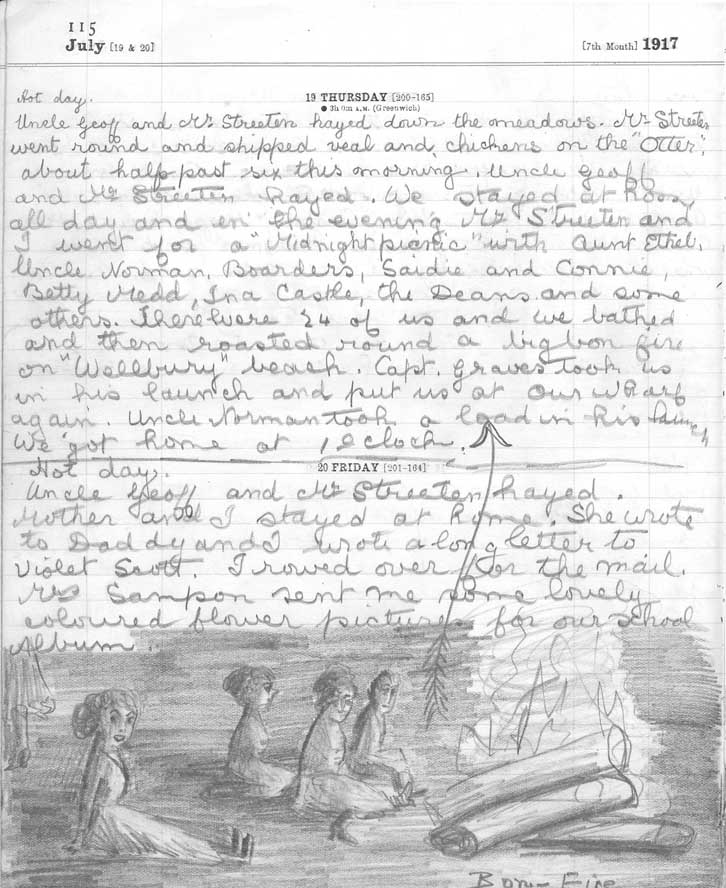 115
July [19 & 20] [7th Month] 1917
19 THURSDAY [200-165]
● 3h 0m A.M. (Greenwich)
Hot day.
Uncle Geoff and Mr Streeten hayed down the meadows. Mr Streeten
went round and shipped veal and chickens on the "Otter",
about half past six this morning. Uncle Geoff
and Mr Streeten hayed. We stayed at home
all day and in the evening Mr Streeten and
I went for a "Midnight picnic" with Aunt Ethel,
Uncle Norman, Boarders, Saidie and Connie,
Betty Medd, Ina Castle, the Deans and some
others. There were 24 of us and we bathed
and then roasted round a big bon fire
on "Wallbury" beach. Capt. Graves took us
in his launch and put us at our wharf
again. Uncle Norman took a load in his launch
We got home at 1 o'clock.
20 FRIDAY [201-164]
Hot day.
Uncle Geoff and Mr Streeten hayed.
Mother and I stayed at home. She wrote
to Daddy and I wrote a long letter to
Violet Scott. I rowed over for the mail.
Mrs Sampson sent me some lovely
coloured flower pictures for our school
Album.
Bon-Fire